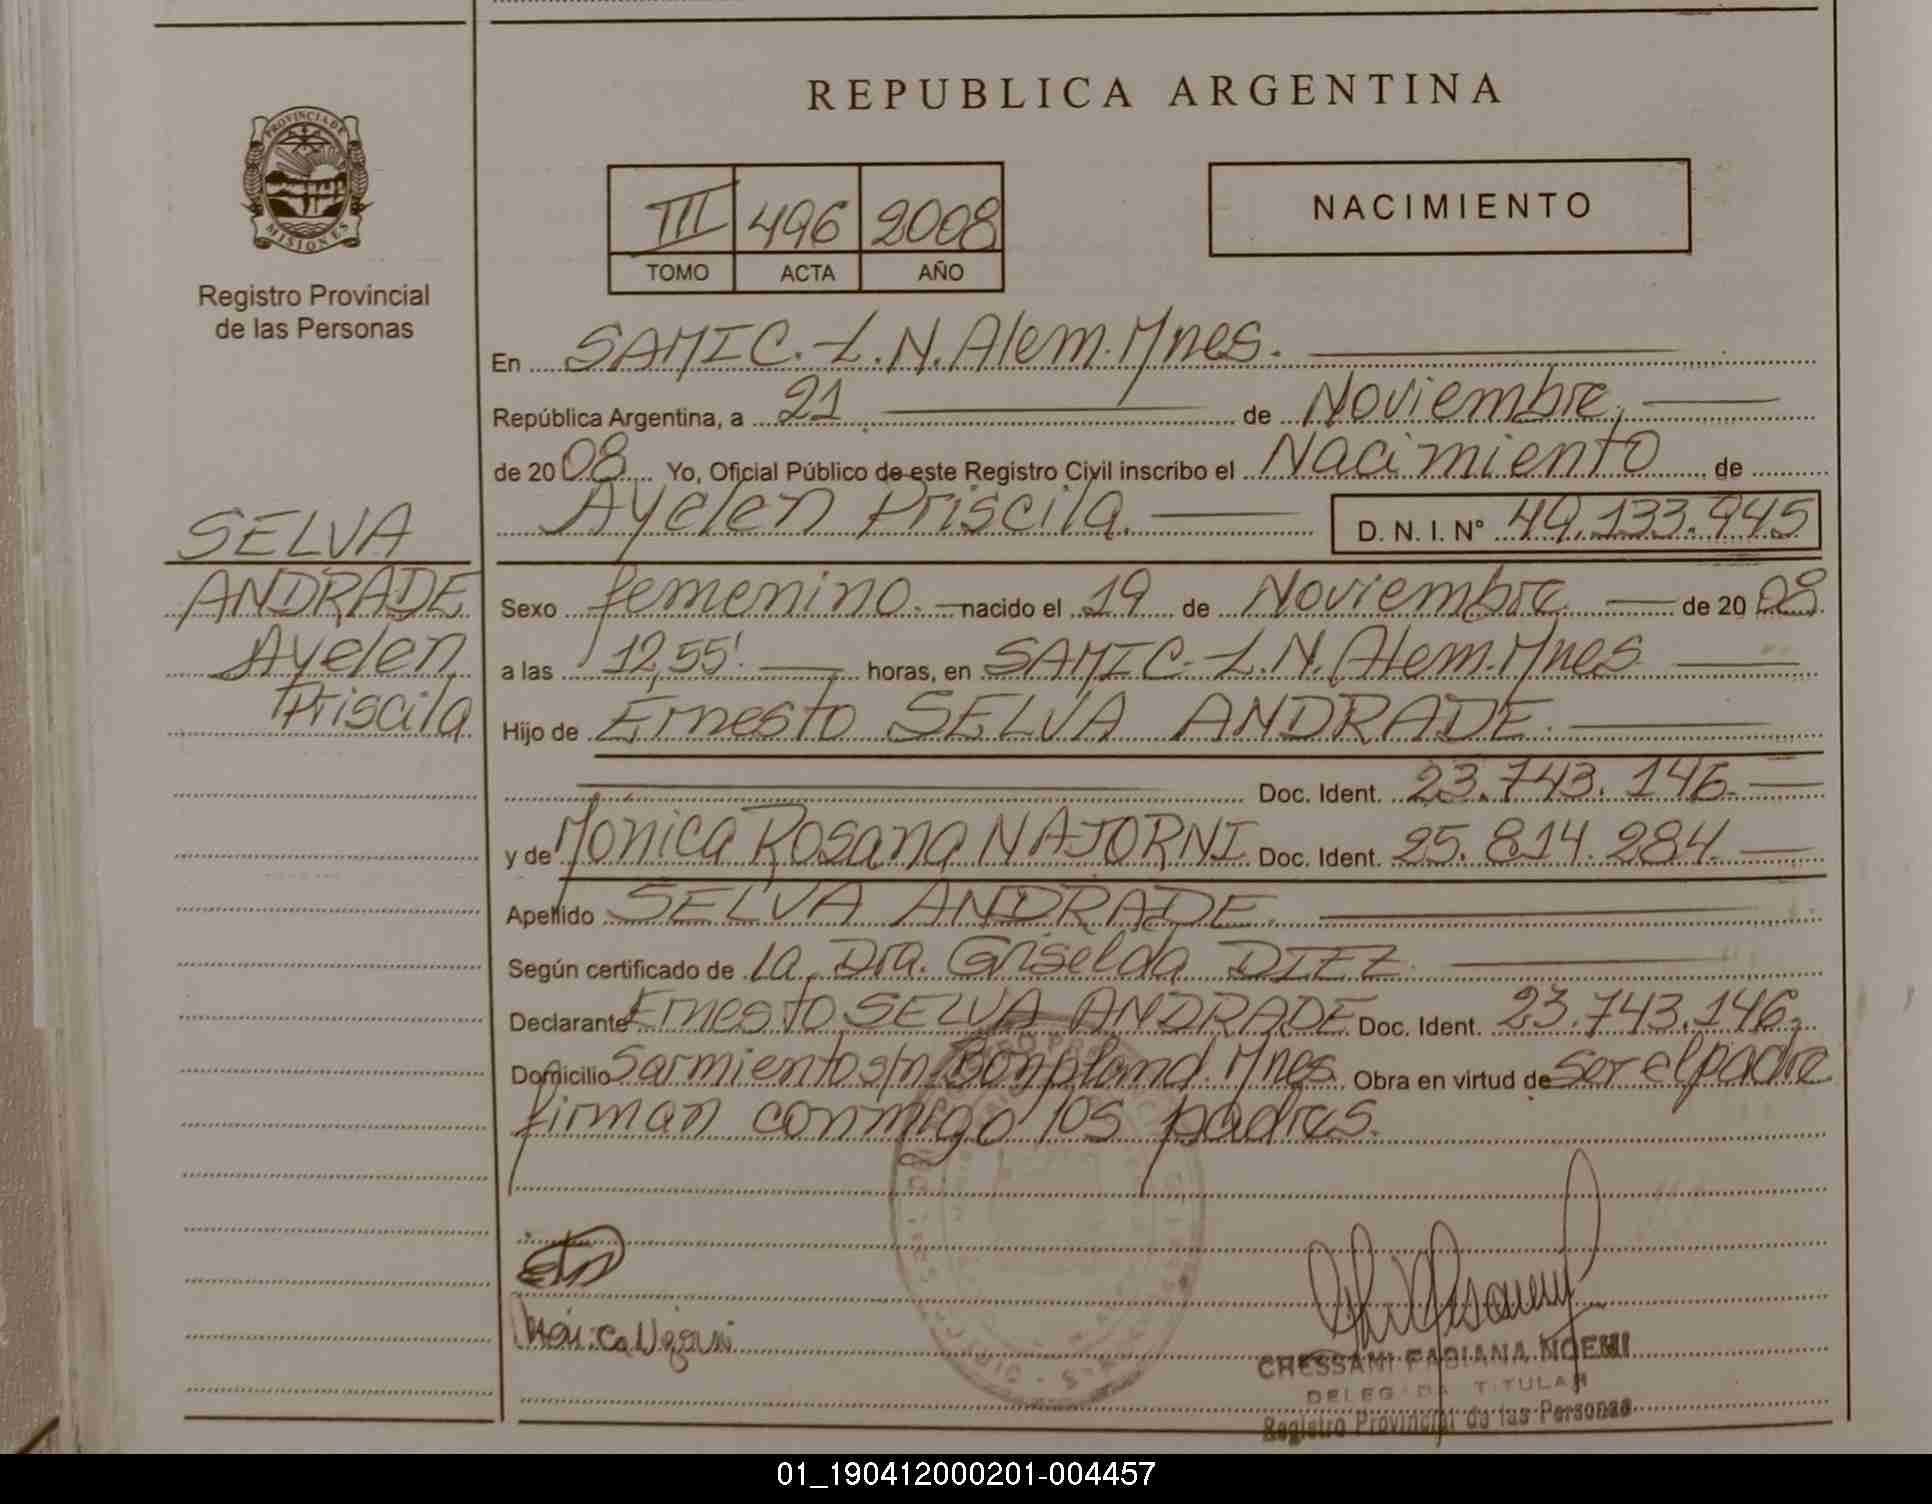 REPUBLICA ARGENTINA
PROVINCIA DE
MISIONES
Registro Provincial
de las Personas
III 496 2008
TOMO ACTA AÑO
NACIMIENTO
En SAMIC. L.N. Alem. Mnes.
República Argentina, a 21 de Noviembre
de 2008 Yo, Oficial Público de este Registro Civil inscribo el Nacimiento de
Ayelen Priscila. D. N. I. N° 49.133.945
SELVA
ANDRADE
Ayelen
Priscila
Sexo femenino. nacido el 19 de Noviembre de 2008
a las 12,55' horas, en SAMIC. L.N. Alem. Mnes
Hijo de Ernesto SELVA ANDRADE.
Doc. Ident. 23.743.146
y de Mónica Rosana NAJORNI Doc. Ident. 25.814.284
Apellido SELVA ANDRADE.
Según certificado de la Dra. Griselda DIEZ
Declarante Ernesto SELVA ANDRADE Doc. Ident. 23.743.146
Domicilio Sarmiento s/n Bonpland. Mnes Obra en virtud de ser el padre
firman conmigo los padres.
CRESSAMI FABIANA NOEMI
DELEGADA TITULAR
Registro Provincial de las Personas
01_190412000201-004457